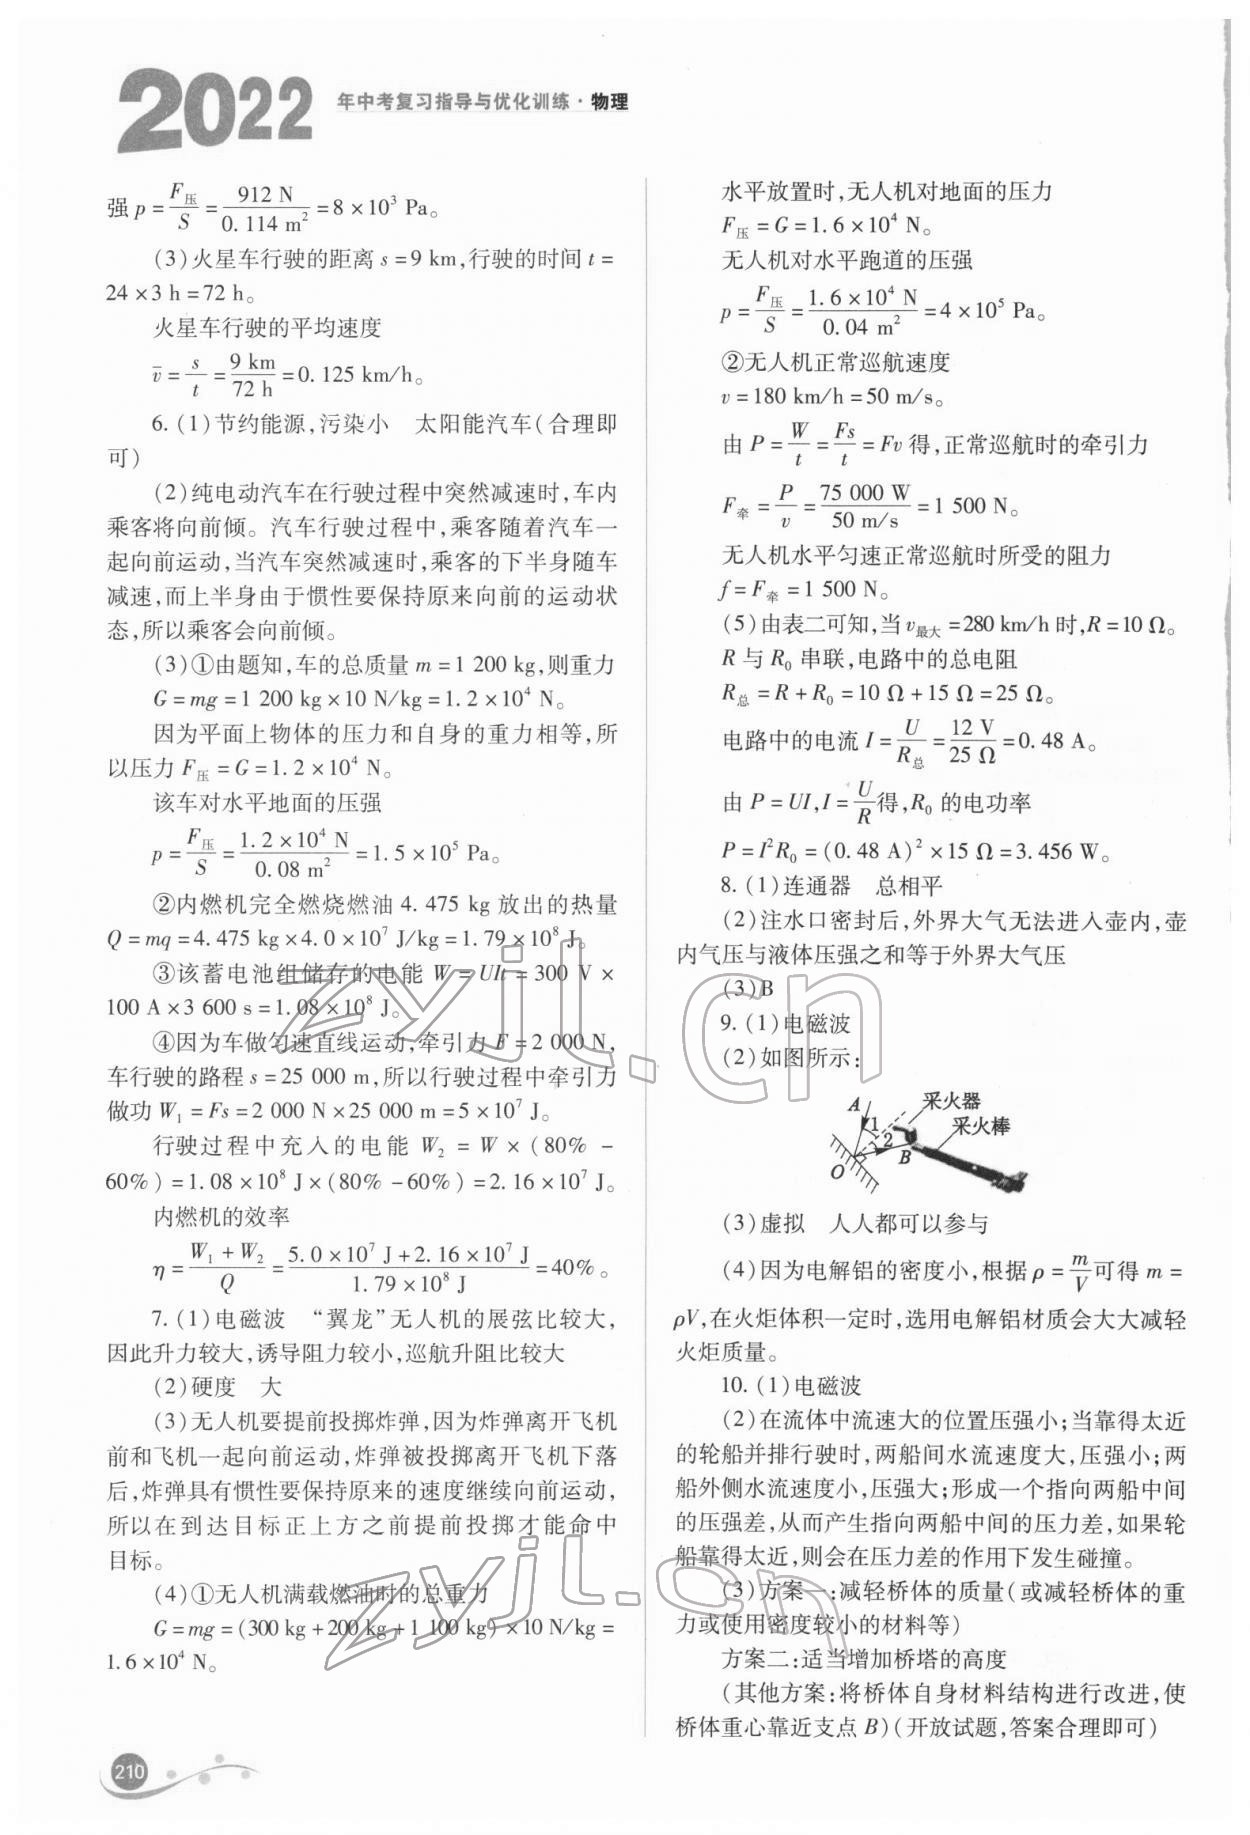 2022 年中考复习指导与优化训练·物理
强 p = F压/S = 912 N/0.114 m² = 8×10³ Pa。
(3)火星车行驶的距离 s=9 km,行驶的时间 t=
24×3 h=72 h。
火星车行驶的平均速度
v̄ = s/t = 9 km/72 h = 0.125 km/h。
6.(1)节约能源,污染小 太阳能汽车(合理即
可)
(2)纯电动汽车在行驶过程中突然减速时,车内
乘客将向前倾。汽车行驶过程中,乘客随着汽车一
起向前运动,当汽车突然减速时,乘客的下半身随车
减速,而上半身由于惯性要保持原来向前的运动状
态,所以乘客会向前倾。
(3)①由题知,车的总质量 m=1 200 kg,则重力
G=mg=1 200 kg×10 N/kg=1.2×10⁴ N。
因为平面上物体的压力和自身的重力相等,所
以压力 F压=G=1.2×10⁴ N。
该车对水平地面的压强
p = F压/S = 1.2×10⁴ N/0.08 m² = 1.5×10⁵ Pa。
②内燃机完全燃烧燃油 4.475 kg 放出的热量
Q=mq=4.475 kg×4.0×10⁷ J/kg=1.79×10⁸ J。
③该蓄电池组储存的电能 W=UIt=300 V×
100 A×3 600 s=1.08×10⁸ J。
④因为车做匀速直线运动,牵引力 F=2 000 N,
车行驶的路程 s=25 000 m,所以行驶过程中牵引力
做功 W₁=Fs=2 000 N×25 000 m=5×10⁷ J。
行驶过程中充入的电能 W₂=W×(80%-
60%)=1.08×10⁸ J×(80%-60%)=2.16×10⁷ J。
内燃机的效率
η = (W₁+W₂)/Q = (5.0×10⁷ J+2.16×10⁷ J)/(1.79×10⁸ J) = 40%。
7.(1)电磁波 “翼龙”无人机的展弦比较大,
因此升力较大,诱导阻力较小,巡航升阻比较大
(2)硬度 大
(3)无人机要提前投掷炸弹,因为炸弹离开飞机
前和飞机一起向前运动,炸弹被投掷离开飞机下落
后,炸弹具有惯性要保持原来的速度继续向前运动,
所以在到达目标正上方之前提前投掷才能命中
目标。
(4)①无人机满载燃油时的总重力
G=mg=(300 kg+200 kg+1 100 kg)×10 N/kg=
1.6×10⁴ N。
210
水平放置时,无人机对地面的压力
F压=G=1.6×10⁴ N。
无人机对水平跑道的压强
p = F压/S = 1.6×10⁴ N/0.04 m² = 4×10⁵ Pa。
②无人机正常巡航速度
v=180 km/h=50 m/s。
由 P = W/t = Fs/t = Fv 得,正常巡航时的牵引力
F牵 = P/v = 75 000 W/50 m/s = 1 500 N。
无人机水平匀速正常巡航时所受的阻力
f=F牵=1 500 N。
(5)由表二可知,当 v最大=280 km/h 时,R=10 Ω。
R 与 R₀ 串联,电路中的总电阻
R总=R+R₀=10 Ω+15 Ω=25 Ω。
电路中的电流 I = U/R总 = 12 V/25 Ω = 0.48 A。
由 P=UI,I=U/R 得,R₀ 的电功率
P=I²R₀=(0.48 A)²×15 Ω=3.456 W。
8.(1)连通器 总相平
(2)注水口密封后,外界大气无法进入壶内,壶
内气压与液体压强之和等于外界大气压
(3)B
9.(1)电磁波
(2)如图所示:
A 1 2 采火器
采火棒
O B
(3)虚拟 人人都可以参与
(4)因为电解铝的密度小,根据 ρ=m/V 可得 m=
ρV,在火炬体积一定时,选用电解铝材质会大大减轻
火炬质量。
10.(1)电磁波
(2)在流体中流速大的位置压强小;当靠得太近
的轮船并排行驶时,两船间水流速度大,压强小;两
船外侧水流速度小,压强大;形成一个指向两船中间
的压强差,从而产生指向两船中间的压力差,如果轮
船靠得太近,则会在压力差的作用下发生碰撞。
(3)方案一:减轻桥体的质量(或减轻桥体的重
力或使用密度较小的材料等)
方案二:适当增加桥塔的高度
(其他方案:将桥体自身材料结构进行改进,使
桥体重心靠近支点 B)(开放试题,答案合理即可)
zyjl.cn
zyjl.cn